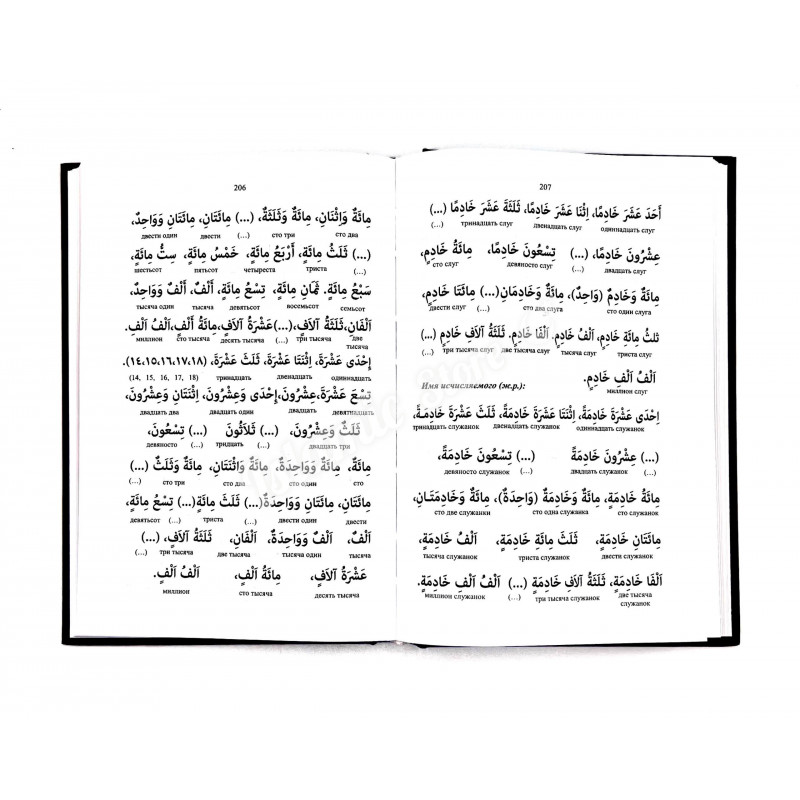 206
مِائَةٌ وَاثْنَانِ، مِائَةٌ وَثَلَثَةٌ، (...) مِائَتَانِ، مِائَتَانِ وَوَاحِدٌ،
двести один двести (...) сто три сто два
(...) ثَلَثُ مِائَةٍ، أَرْبَعُ مِائَةٍ، خَمْسُ مِائَةٍ، سِتُّ مِائَةٍ،
шестьсот пятьсот четыреста триста (...)
سَبْعُ مِائَةٍ. ثَمَانِ مِائَةٍ. تِسْعُ مِائَةٍ. أَلْفٌ. أَلْفٌ وَوَاحِدٌ،
тысяча один тысяча девятьсот восемьсот семьсот
اَلْفَانِ، ثَلَثَةُ آلَافٍ، (...) عَشْرَةُ آلَافٍ، مِائَةُ أَلْفٍ، اَلْفُ اَلْفٍ.
миллион сто тысяч десять тысяч (...) три тысячи две тысячи
إِحْدَى عَشْرَةَ، اِثْنَتَا عَشْرَةَ، ثَلَثَ عَشْرَةَ، (١٤،١٥،١٦،١٧،١٨)
(14, 15, 16, 17, 18) тринадцать двенадцать одиннадцать
تِسْعَ عَشْرَةَ، عِشْرُونَ، إِحْدَى وَعِشْرُونَ، اِثْنَتَانِ وَعِشْرُونَ،
двадцать два двадцать один двадцать девятнадцать
ثَلَثٌ وَعِشْرُونَ، (...) ثَلَاثُونَ (...) تِسْعُونَ،
девяносто (...) тридцать (...) двадцать три
مِائَةٌ، مِائَةٌ وَوَاحِدَةٌ، مِائَةٌ وَاثْنَتَانِ، مِائَةٌ وَثَلَثٌ (...)
(...) сто три сто два сто один сто
مِائَتَانِ، مِائَتَانِ وَوَاحِدَةٌ (...) ثَلَثُ مِائَةٍ (...) تِسْعُ مِائَةٍ،
девятьсот (...) триста (...) двести один двести
اَلْفٌ، اَلْفٌ وَوَاحِدَةٌ، اَلْفَانِ، ثَلَثَةُ آلَافٍ، (...)
(...) три тысячи две тысячи тысяча один тысяча
عَشْرَةُ آلَافٍ، مِائَةُ اَلْفٍ، اَلْفُ اَلْفٍ.
миллион сто тысяча десять тысяча
207
أَحَدَ عَشَرَ خَادِمًا، اِثْنَا عَشَرَ خَادِمًا، ثَلَثَةَ عَشَرَ خَادِمًا (...)
(...) тринадцать слуг двенадцать слуг одиннадцать слуг
عِشْرُونَ خَادِمًا، (...) تِسْعُونَ خَادِمًا، مِائَةُ خَادِمٍ،
сто слуг девяносто слуг (...) двадцать слуг
مِائَةٌ وَخَادِمٌ (وَاحِدٌ)، مِائَةٌ وَخَادِمَانِ (...) مِائَتَا خَادِمٍ،
двести слуг (...) сто два слуги сто один слуга
ثَلَثُ مِائَةِ خَادِمٍ، اَلْفُ خَادِمٍ. اَلْفَا خَادِمٍ. ثَلَثَةُ آلَافِ خَادِمٍ (...)
(...) три тысячи слуг две тысячи слуг тысяча слуг триста слуг
اَلْفُ اَلْفِ خَادِمٍ.
миллион слуг
Имя исчисляемого (ж.р.):
اِحْدَى عَشْرَةَ خَادِمَةً، اِثْنَتَا عَشْرَةَ خَادِمَةً، ثَلَثَ عَشْرَةَ خَادِمَةً،
тринадцать служанок двенадцать служанок одиннадцать служанок
(...) عِشْرُونَ خَادِمَةً (...) تِسْعُونَ خَادِمَةً،
девяносто служанок (...) двадцать служанок (...)
مِائَةُ خَادِمَةٍ، مِائَةٌ وَخَادِمَةٌ (وَاحِدَةٌ)، مِائَةٌ وَخَادِمَتَانِ،
сто две служанки сто одна служанка сто служанок
مِائَتَانِ خَادِمَةٍ، ثَلَثُ مِائَةِ خَادِمَةٍ، اَلْفُ خَادِمَةٍ،
тысяча служанок триста служанок двести служанок
اَلْفَا خَادِمَةٍ، ثَلَثَةُ آلَافِ خَادِمَةٍ (...) اَلْفُ اَلْفِ خَادِمَةٍ.
миллион служанок (...) три тысячи служанок две тысячи служанок